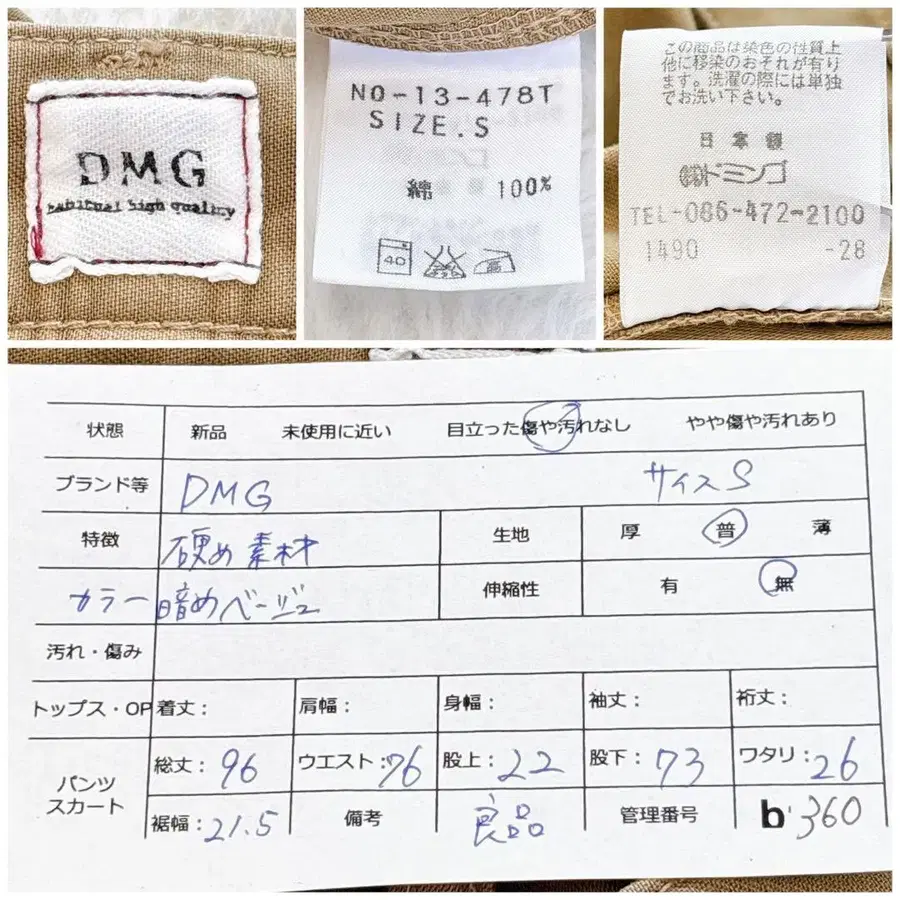 DMG
habitual high quality
NO-13-478T
SIZE.S
綿 100%
40
この商品は染色の性質上
他に移染のおそれが有り
ます。洗濯の際には単独
でお洗い下さい。
日本製
㈱ドミンゴ
TEL-086-472-2100
1490 -28
状態 新品 未使用に近い 目立った傷や汚れなし やや傷や汚れあり
ブランド等 DMG サイズS
特徴 硬め素材 生地 厚 普 薄
カラー 暗めベージュ 伸縮性 有 無
汚れ・傷み
トップス・OP 着丈： 肩幅： 身幅： 袖丈： 裄丈：
パンツ
スカート
総丈：96 ウエスト：76 股上：22 股下：73 ワタリ：26
裾幅：21.5 備考 良品 管理番号 b'360